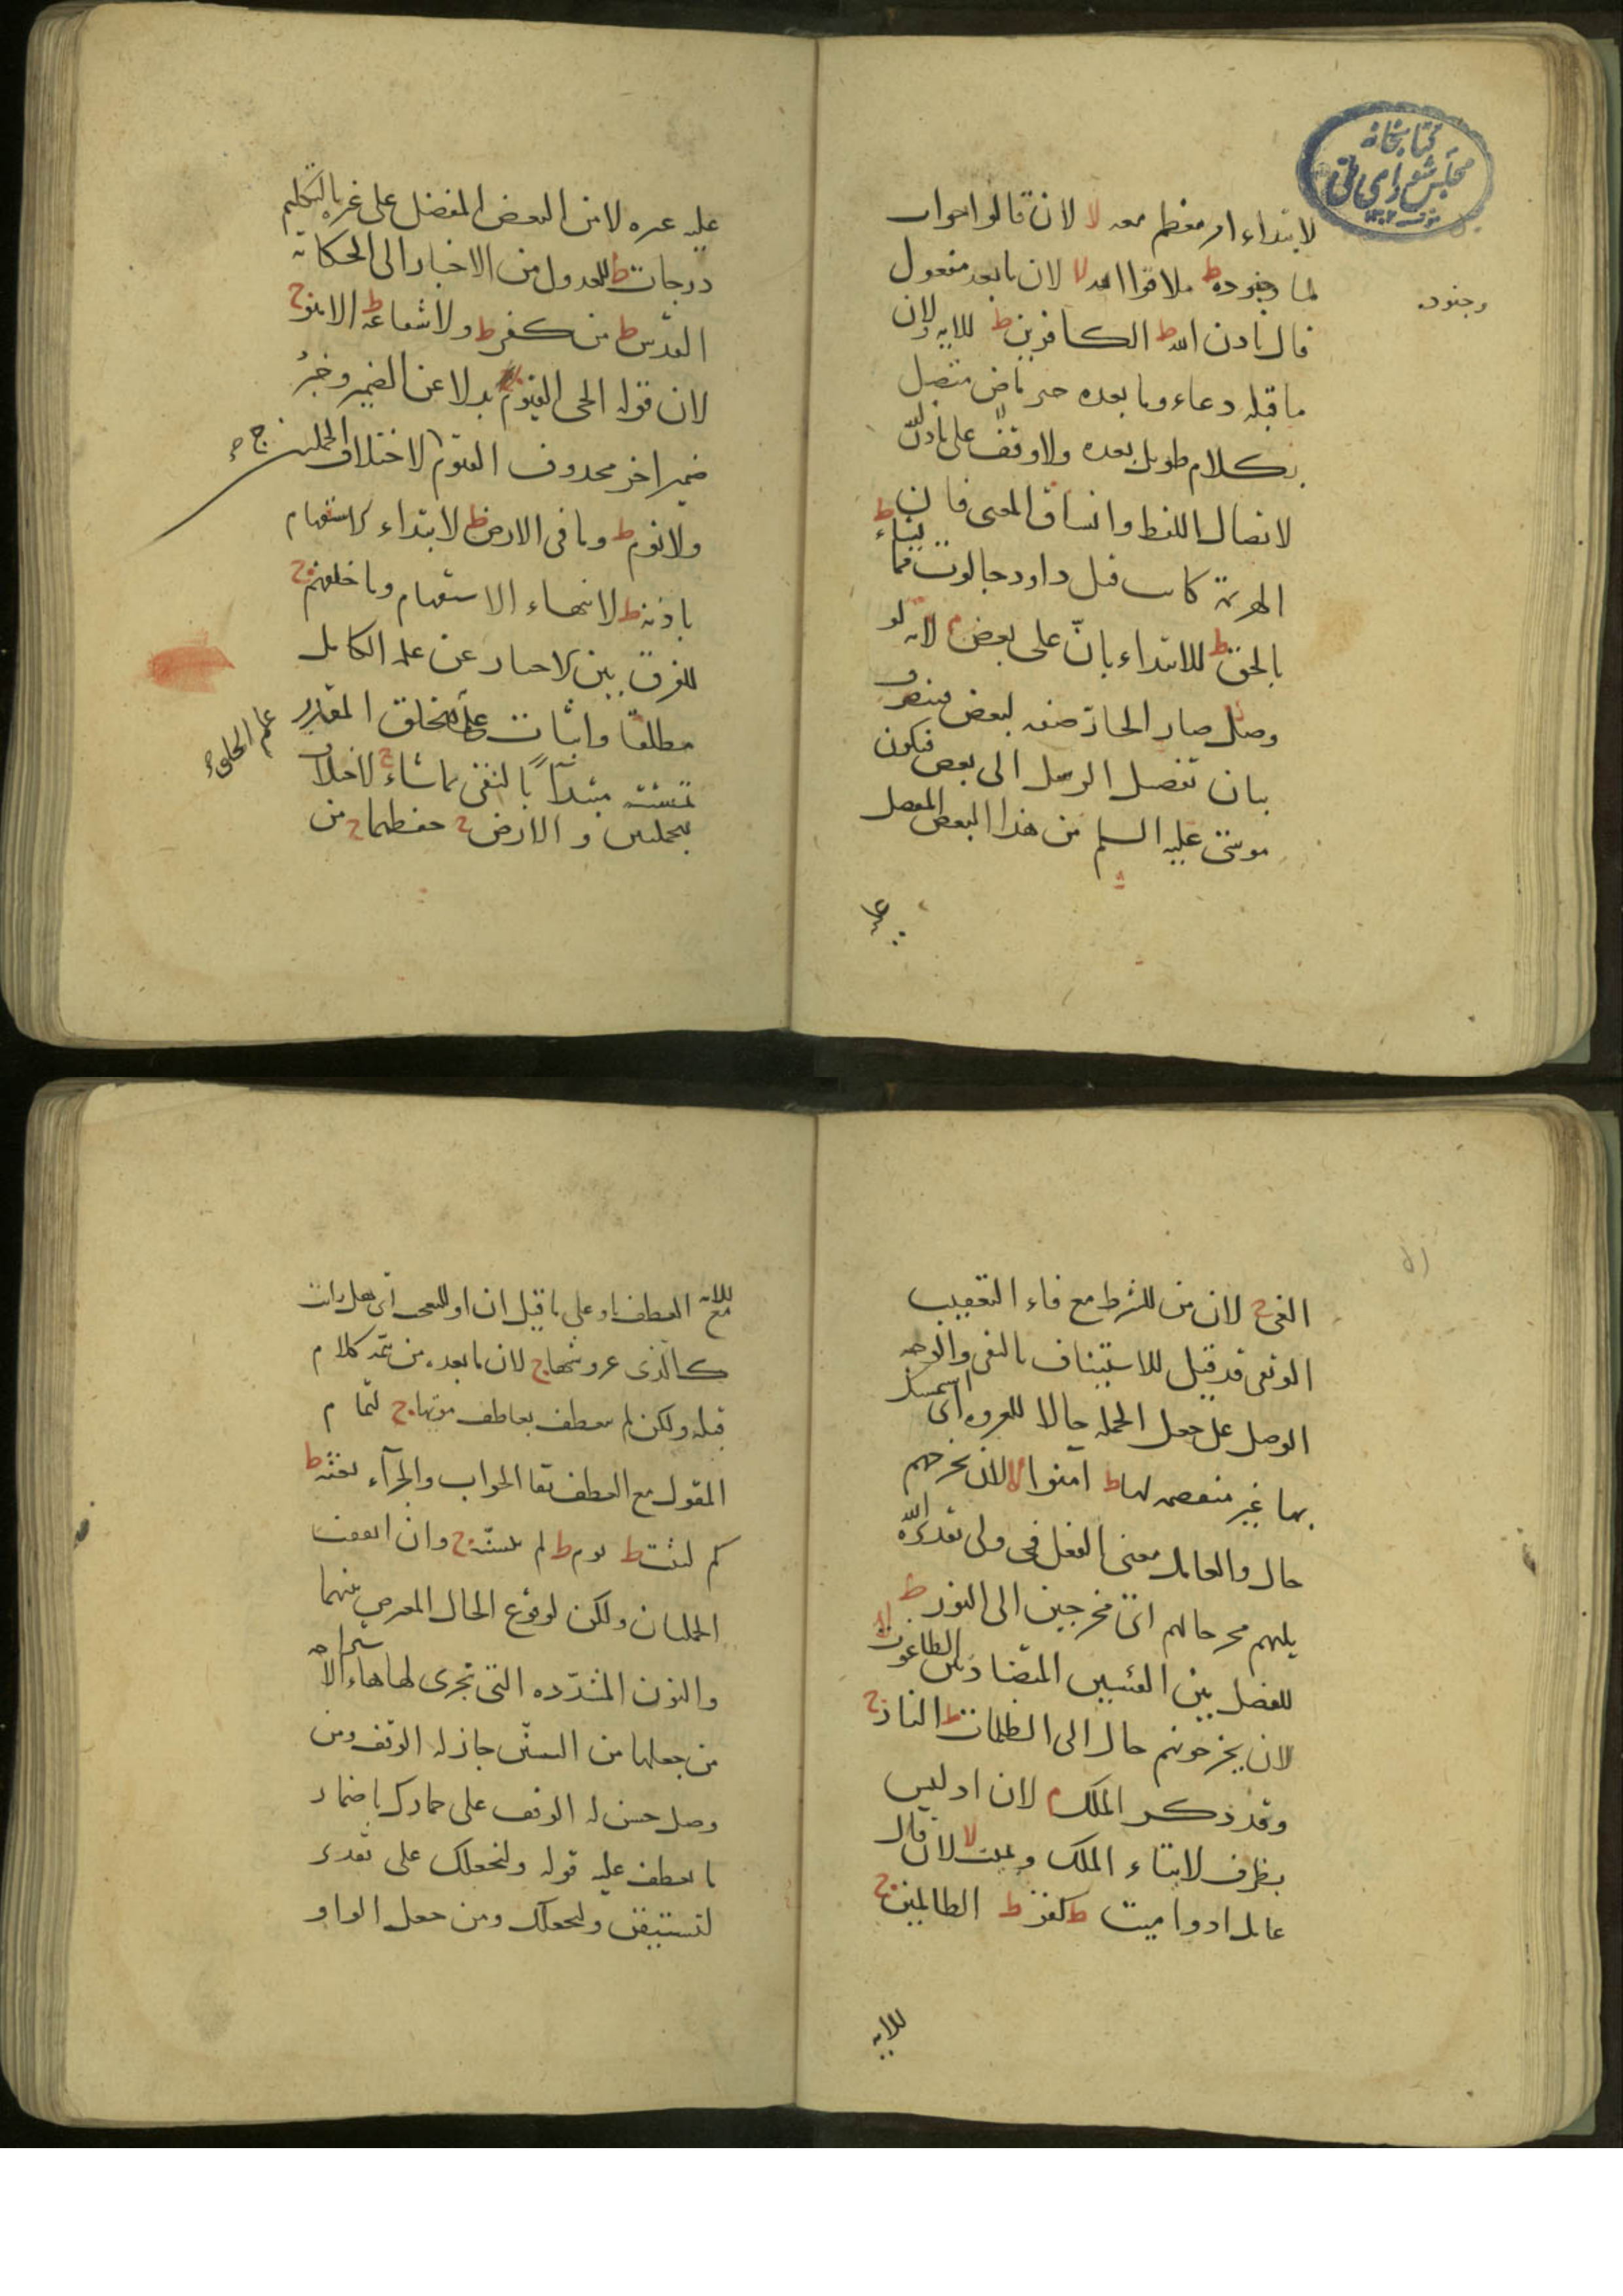 كتابخانه
مجلس شورای ملی
لابتداء امر معظم معه لا لان قالوا جواب
لما وجنوده ط ملاقوا الله لا لان ما بعد مفعول
وجنوده
قال باذن الله ط الكافرين ط للايه ولان
ما قبله دعاء وما بعده خبر ماض متصل
بكلام طويل بعده ولا وقف على باذن الله
لاتصال اللفظ وانساق المعنى فان
الهزيمة كانت قبل داود جالوت مما يشاء ط
بالحق ط للابتداء بان على بعض م لانه لو
وصل صار الجار صفه لبعض فينصرف
بيان تفضيل الرسل الى بعض فيكون
موسى عليه السلم من هذا البعض المفضل
عليه
عليه غيره لا من البعض المفضل على غيره بالتكليم
درجات ط للعدول من الاخبار الى الحكاية
القدس ط من كفر ط ولا شفاعة ط الا هو ج
لان قوله الحي القيوم بدلا عن الضمير وخبر
ضمير اخر محذوف القيوم لاختلاف الجملتين ج
ولا نوم ط وما في الارض ط لابتداء الاستفهام
باذنه ط لانتهاء الاستفهام وما خلفهم ج
للفرق بين الاخبار عن علمه الكامل
مطلقا واثبات علم الخلق المقدر
علم الخلق
بمشيته مبتدأ بالنفي بما شاء ج لاختلاف
الجملتين والارض ج حفظهما ج من
الغى ج لان من للشرط مع فاء التعقيب
الوثقى قد قيل للاستيناف بالنفى والوجه
الوصل على جعل الجملة حالا للعروه اى استمسك
بها غير منفصمه لها ط امنوا لا لان يخرجهم
حال والعامل معنى الفعل في ولى تقديره الله
يليهم مخرجا لهم اى مخرجين الى النور ط
للفصل بين الفئتين المتضادتين الطاغوت لا
لان يخرجونهم حال الى الظلمات ط النار ج
وقد ذكر الملك م لان اذ ليس
بظرف لايتاء الملك ويميت لا لان قال
عامل اذ واميت ط كفر ط الظالمين ج
للايه
للايه مع العطف باو على ما قيل ان او للتعجب اى هل رايت
كالذى عروشها ج لان ما بعده من تتمة كلام
قبله ولكن لم يعطف بعاطف موتها ج لتمام
المقول مع العطف بفا الجواب والجزآء بعثه ط
كم لبثت ط يوم ط لم يتسنه ج وان اتفقت
الجملتان ولكن لوقوع الحال المعرض بينهما
والنون المشددة التى تجرى لها هاء الاستراحة
من جعلها من التسنن جاز له الوقف ومن
وصل حسن له الوقف على حمارك باضمار
ما يعطف عليه قوله ولنجعلك على تقدير
لتستيقن ولنجعلك ومن جعل الواو